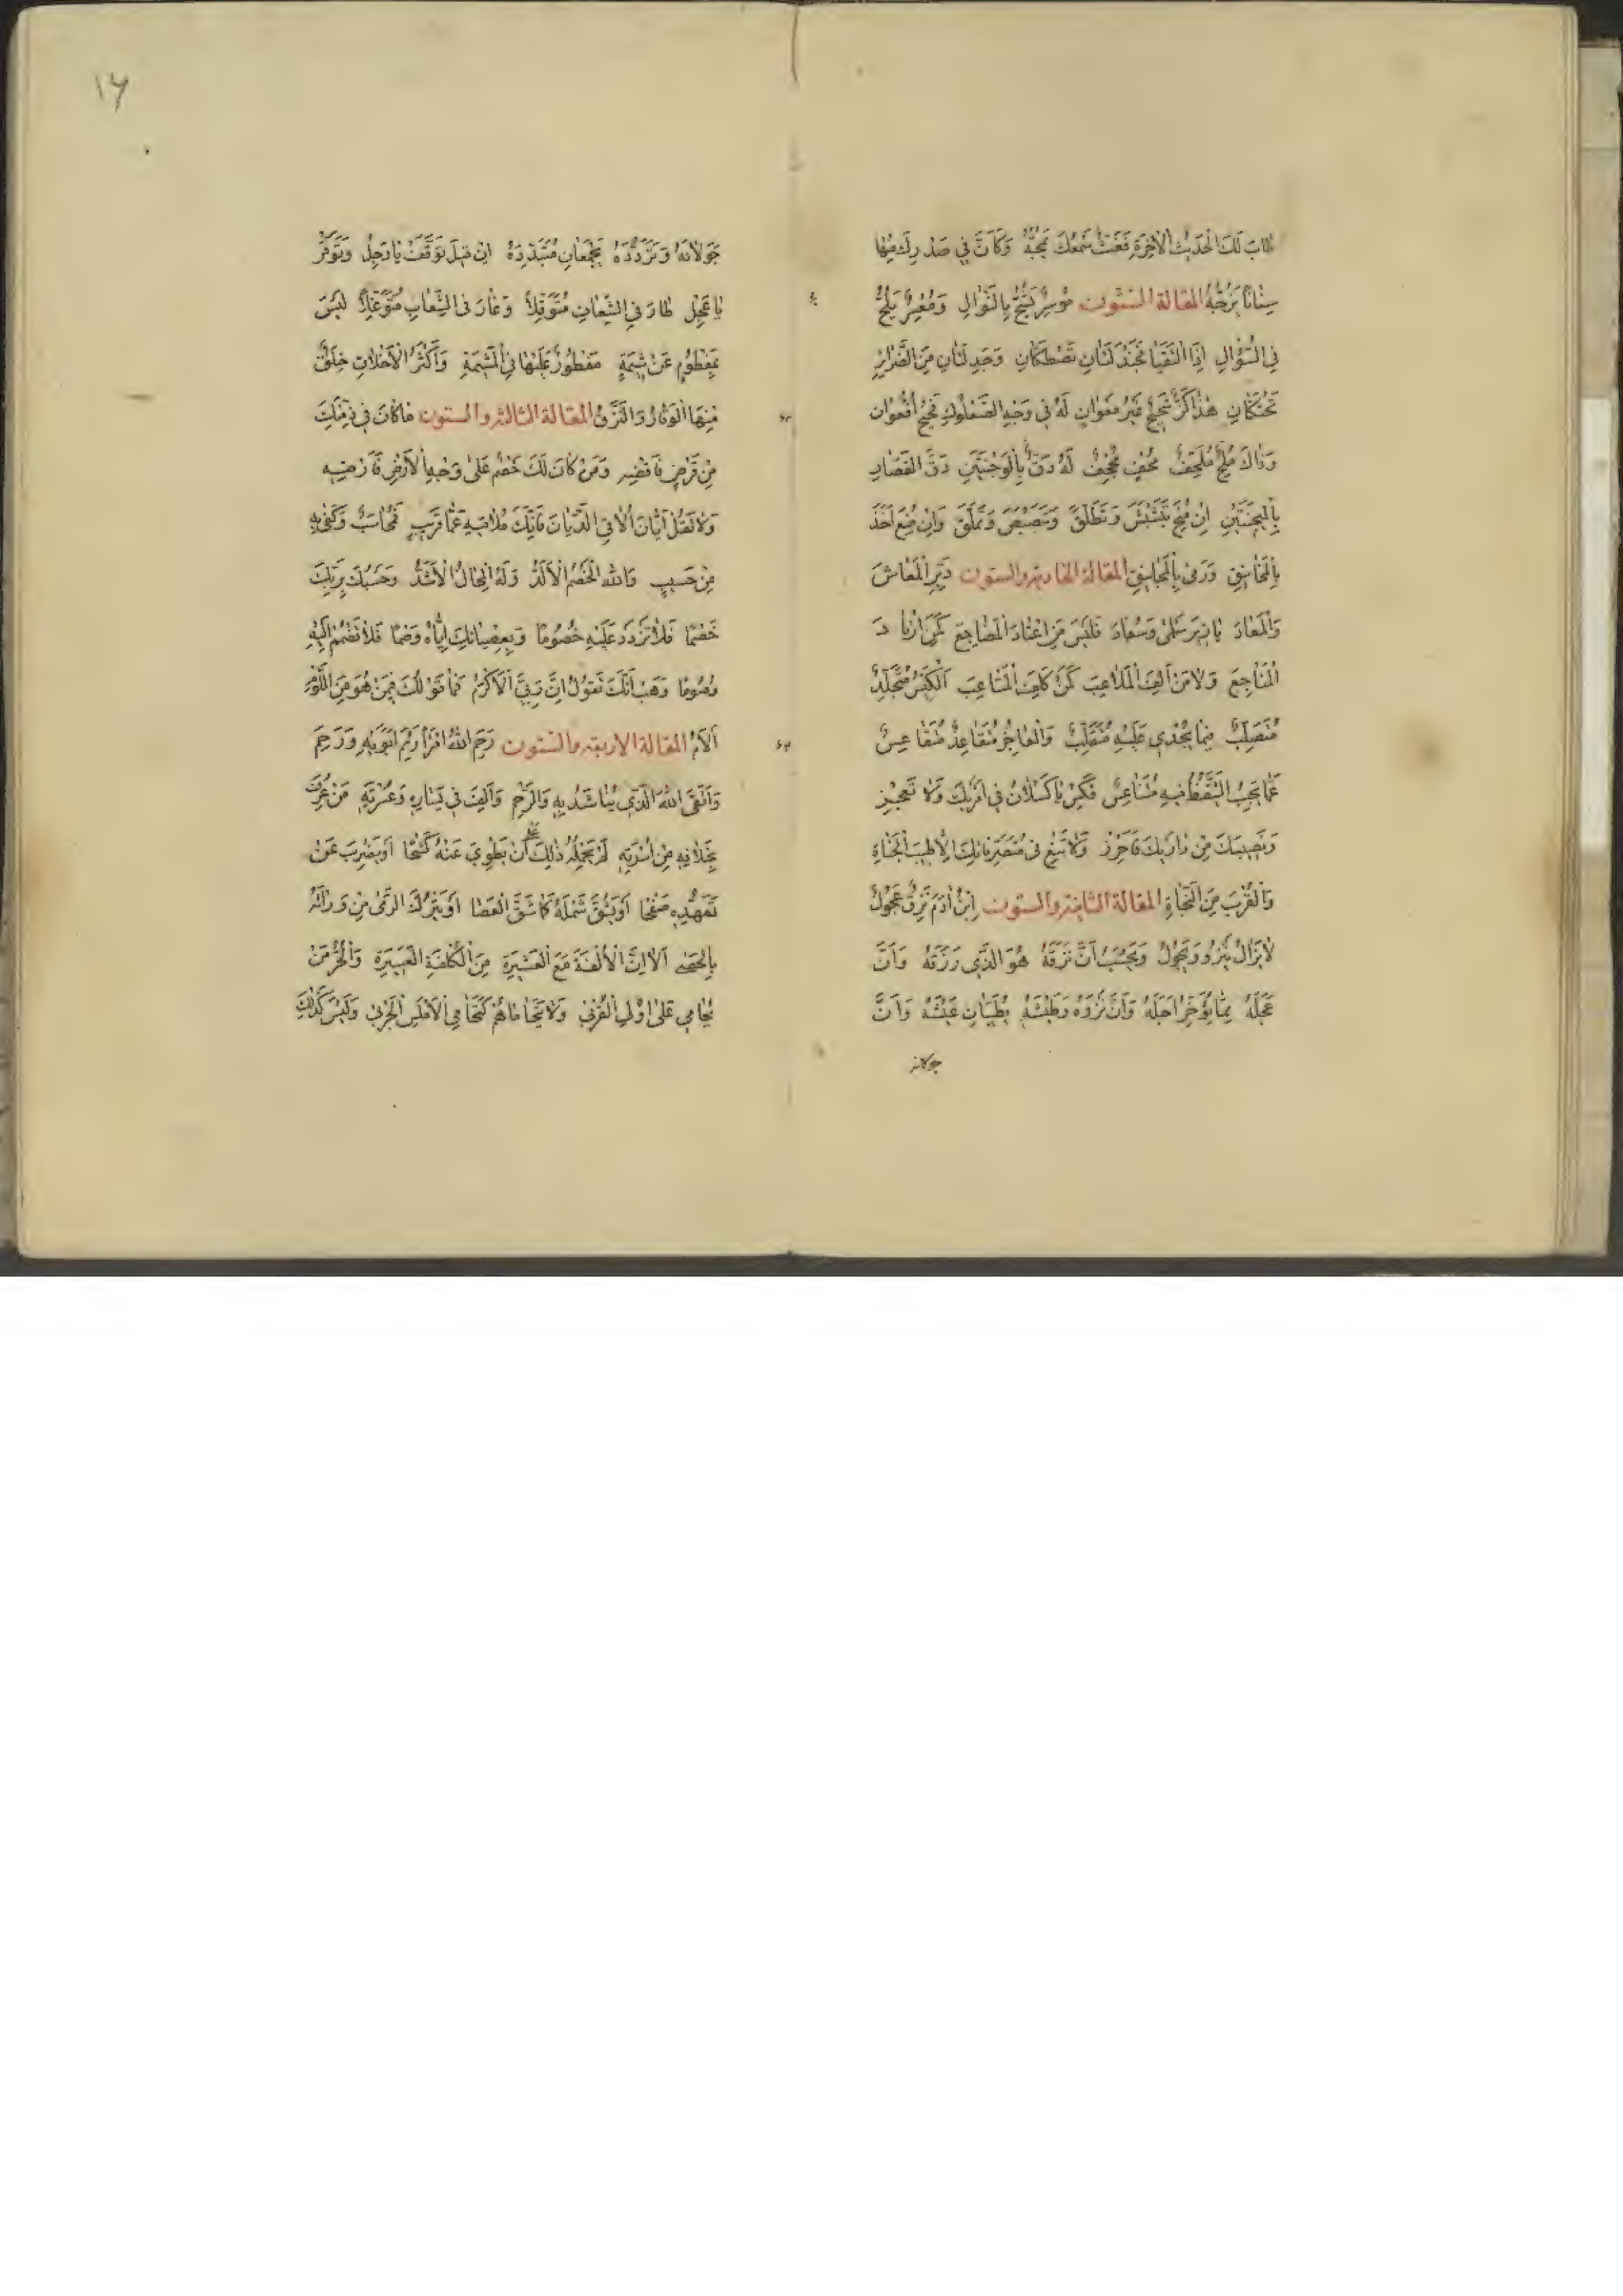 طَابَ لَكَ الْحَدِيثُ الْاٰخِرَةِ فَغَثٌّ سَمْعُكَ يَمُجُّهُ وَكَاَنَّ فِي صَدْرِكَ مِنْهَا
سِنَانًا يَزُجُّهُ المقالة الستّون مُوسِرٌ يَشُحُّ بِالنَّوَالِ وَمُعْسِرٌ يُلِحُّ
فِي السُّؤَالِ اِذَا الْتَقَيَا فَجَنْدَلَتَانِ تَصْطَكَّانِ وَجَدِيلَتَانِ مِنَ الضَّرَائِرِ
تَحْتَكَّانِ هٰذَا كَزٌّ شَحِيحٌ غَيْرُ مِعْوَانٍ لَهُ فِي وَجْهِ الصُّعْلُوكِ فَحِيحُ اُفْعُوَانٍ
وَذَاكَ مُلِحٌّ مُلْحِفٌ مُحْفٍ مُجْحِفٌ لَهُ دَقٌّ بِالْوَجْنَتَيْنِ دَقَّ الْقَصَّارِ
بِالْمِيجَنَتَيْنِ اِنْ مُنِحَ تَبَشْبَشَ وَتَطَلَّقَ وَتَبَصْبَصَ وَتَمَلَّقَ وَاِنْ مُنِعَ اَخَذَ
بِالْمَخَانِيقِ وَرَمٰى بِالْمَجَانِيقِ المقالة الحادية والستون دَبِّرِ الْمَعَاشَ
وَالْمَعَادَ يَا بْنَ سَلْمٰى وَسُعَادَ فَلَيْسَ مَنِ اعْتَادَ الْمَضَاجِعَ كَمَنِ ارْتَادَ
الْمَنَاجِعَ وَلَا مَنْ اَلِفَ الْمَلَاعِبَ كَمَنْ كَلِفَ الْمَتَاعِبَ اَلْكَيِّسُ مُتَجَلِّدٌ
مُتَصَلِّبٌ فِيمَا يُجْدِي عَلَيْهِ مُتَقَلِّبٌ وَالْعَاجِزُ مُتَقَاعِدٌ مُتَقَاعِسٌ
عَمَّا يَجِبُ التَّيَقُّظُ فِيهِ مُتَنَاعِسٌ فَكِسْ يَا كَسْلَانُ فِي اَمْرِكَ وَلَا تَعْجِزْ
وَنَصِيبَكَ مِنْ دَارَيْكَ فَاَحْرِزْ وَلَا تَبْغِ فِي مُتَصَرَّفَاتِكَ اِلَّا طِيبَ الْحَيَاةِ
وَالْقُرْبَ مِنَ النَّجَاةِ المقالة الثانية والستون اِبْنُ اٰدَمَ نَزِقٌ عَجُولٌ
لَا يَزَالُ يَنْزُو وَيَجُولُ وَيَحْسَبُ اَنَّ نَزَقَهُ هُوَ الَّذِي رَزَقَهُ وَاَنَّ
عَجَلَهُ مِمَّا يُؤَخِّرُ اَجَلَهُ وَاَنَّ نَزْوَهُ وَطَيْشَهُ يُطَيِّبَانِ عَيْشَهُ وَاَنَّ
جولانه
١٦
جَوَلَانَهُ وَتَرَدُّدَهُ يَجْمَعَانِ مُتَبَدِّدَهُ اِنْ قِيلَ تَوَقَّفْ يَا رَجُلُ وَتَوَقَّرْ
يَا عَجِلُ طَارَ فِي الشِّعَابِ مُتَوَقِّلًا وَغَارَ فِي الشِّعَابِ مُتَوَغِّلًا لَيْسَ
بِمَفْطُومٍ عَنْ شِيمَةٍ مَفْطُورٌ عَلَيْهَا فِي الْمَشِيمَةِ وَاَكْثَرُ الْاَخْلَاقِ خِلَقٌ
مِنْهَا الْوَقَارُ وَالنَّزَقُ المقالة الثالثة والستون مَا كَانَ فِي ذِمَّتِكَ
مِنْ قَرْضٍ فَاقْضِهِ وَمَنْ كَانَ لَكَ خَصْمٌ عَلٰى وَجْهِ الْاَرْضِ فَاَرْضِهِ
وَلَا تَقُلْ اَيَّانَ اُلَاقِي الدَّيَّانَ فَاِنَّكَ مُلَاقِيهِ عَمَّا قَرِيبٍ فَمُحَاسَبٌ وَكَفٰى بِهِ
مِنْ حَسِيبٍ وَاللّٰهُ الْخَصْمُ الْاَلَدُّ وَلَهُ الْمِحَالُ الْاَشَدُّ وَحَسْبُكَ بِرَبِّكَ
خَصْمًا فَلَا تَزْدَدْ عَلَيْهِ خُصُومًا وَبِعِصْيَانِكَ اِيَّاهُ وَصْمًا فَلَا تَضْمُمْ اِلَيْهِ
وُصُومًا وَهَبْ اَنَّكَ تَقُولُ اِنَّ رَبِّيَ الْاَكْرَمُ فَمَا قَوْلُكَ فِيمَنْ هُوَ مِنَ اللُّؤْمِ
اَلْاَمُ المقالة الاربعة والستون رَحِمَ اللّٰهُ امْرَأً رَئِمَ اَبَوَيْهِ وَرَحِمَ
وَاتَّقَى اللّٰهَ الَّذِي يُنَاشَدُ بِهِ وَالرَّحِمَ وَاَلِفَ فِي يَسَارِهِ وَعُسْرَتِهِ مَنْ عُرِفَ
بِخِلَافِهِ مِنْ اُسْرَتِهِ لَمْ يَحْمِلْهُ ذٰلِكَ عَلٰى اَنْ يَطْوِيَ عَنْهُ كَشْحًا اَوْ يَضْرِبَ عَنْ
تَعَهُّدِهِ صَفْحًا اَوْ يَشُقَّ شَمْلَهُ كَمَا شَقَّ الْعَصَا اَوْ يَتْرُكَ الرَّمْيَ مِنْ وَرَائِهِ
بِالْحَصٰى اَلَا اِنَّ الْاُلْفَةَ مَعَ الْعَشِيرَةِ مِنَ الْكُلْفَةِ الْعَسِيرَةِ وَالْحُرُّ مَنْ
يُحَامِي عَلٰى اُولِي الْقُرْبٰى وَلَا يَتَحَامَاهُمْ كَتَحَامِي الْاَمْلَسِ الْجَرْبٰى وَلَيْسَ كَذٰلِكَ